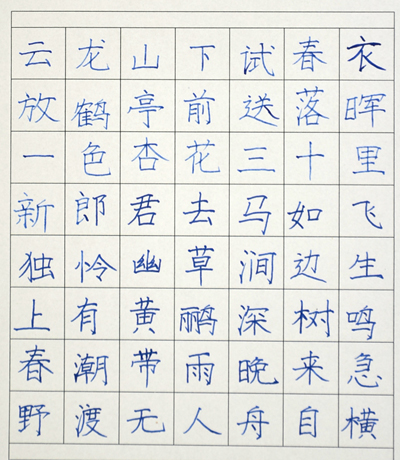 云龙山下试春衣
放鹤亭前送落晖
一色杏花三十里
新郎君去马如飞
独怜幽草涧边生
上有黄鹂深树鸣
春潮带雨晚来急
野渡无人舟自横